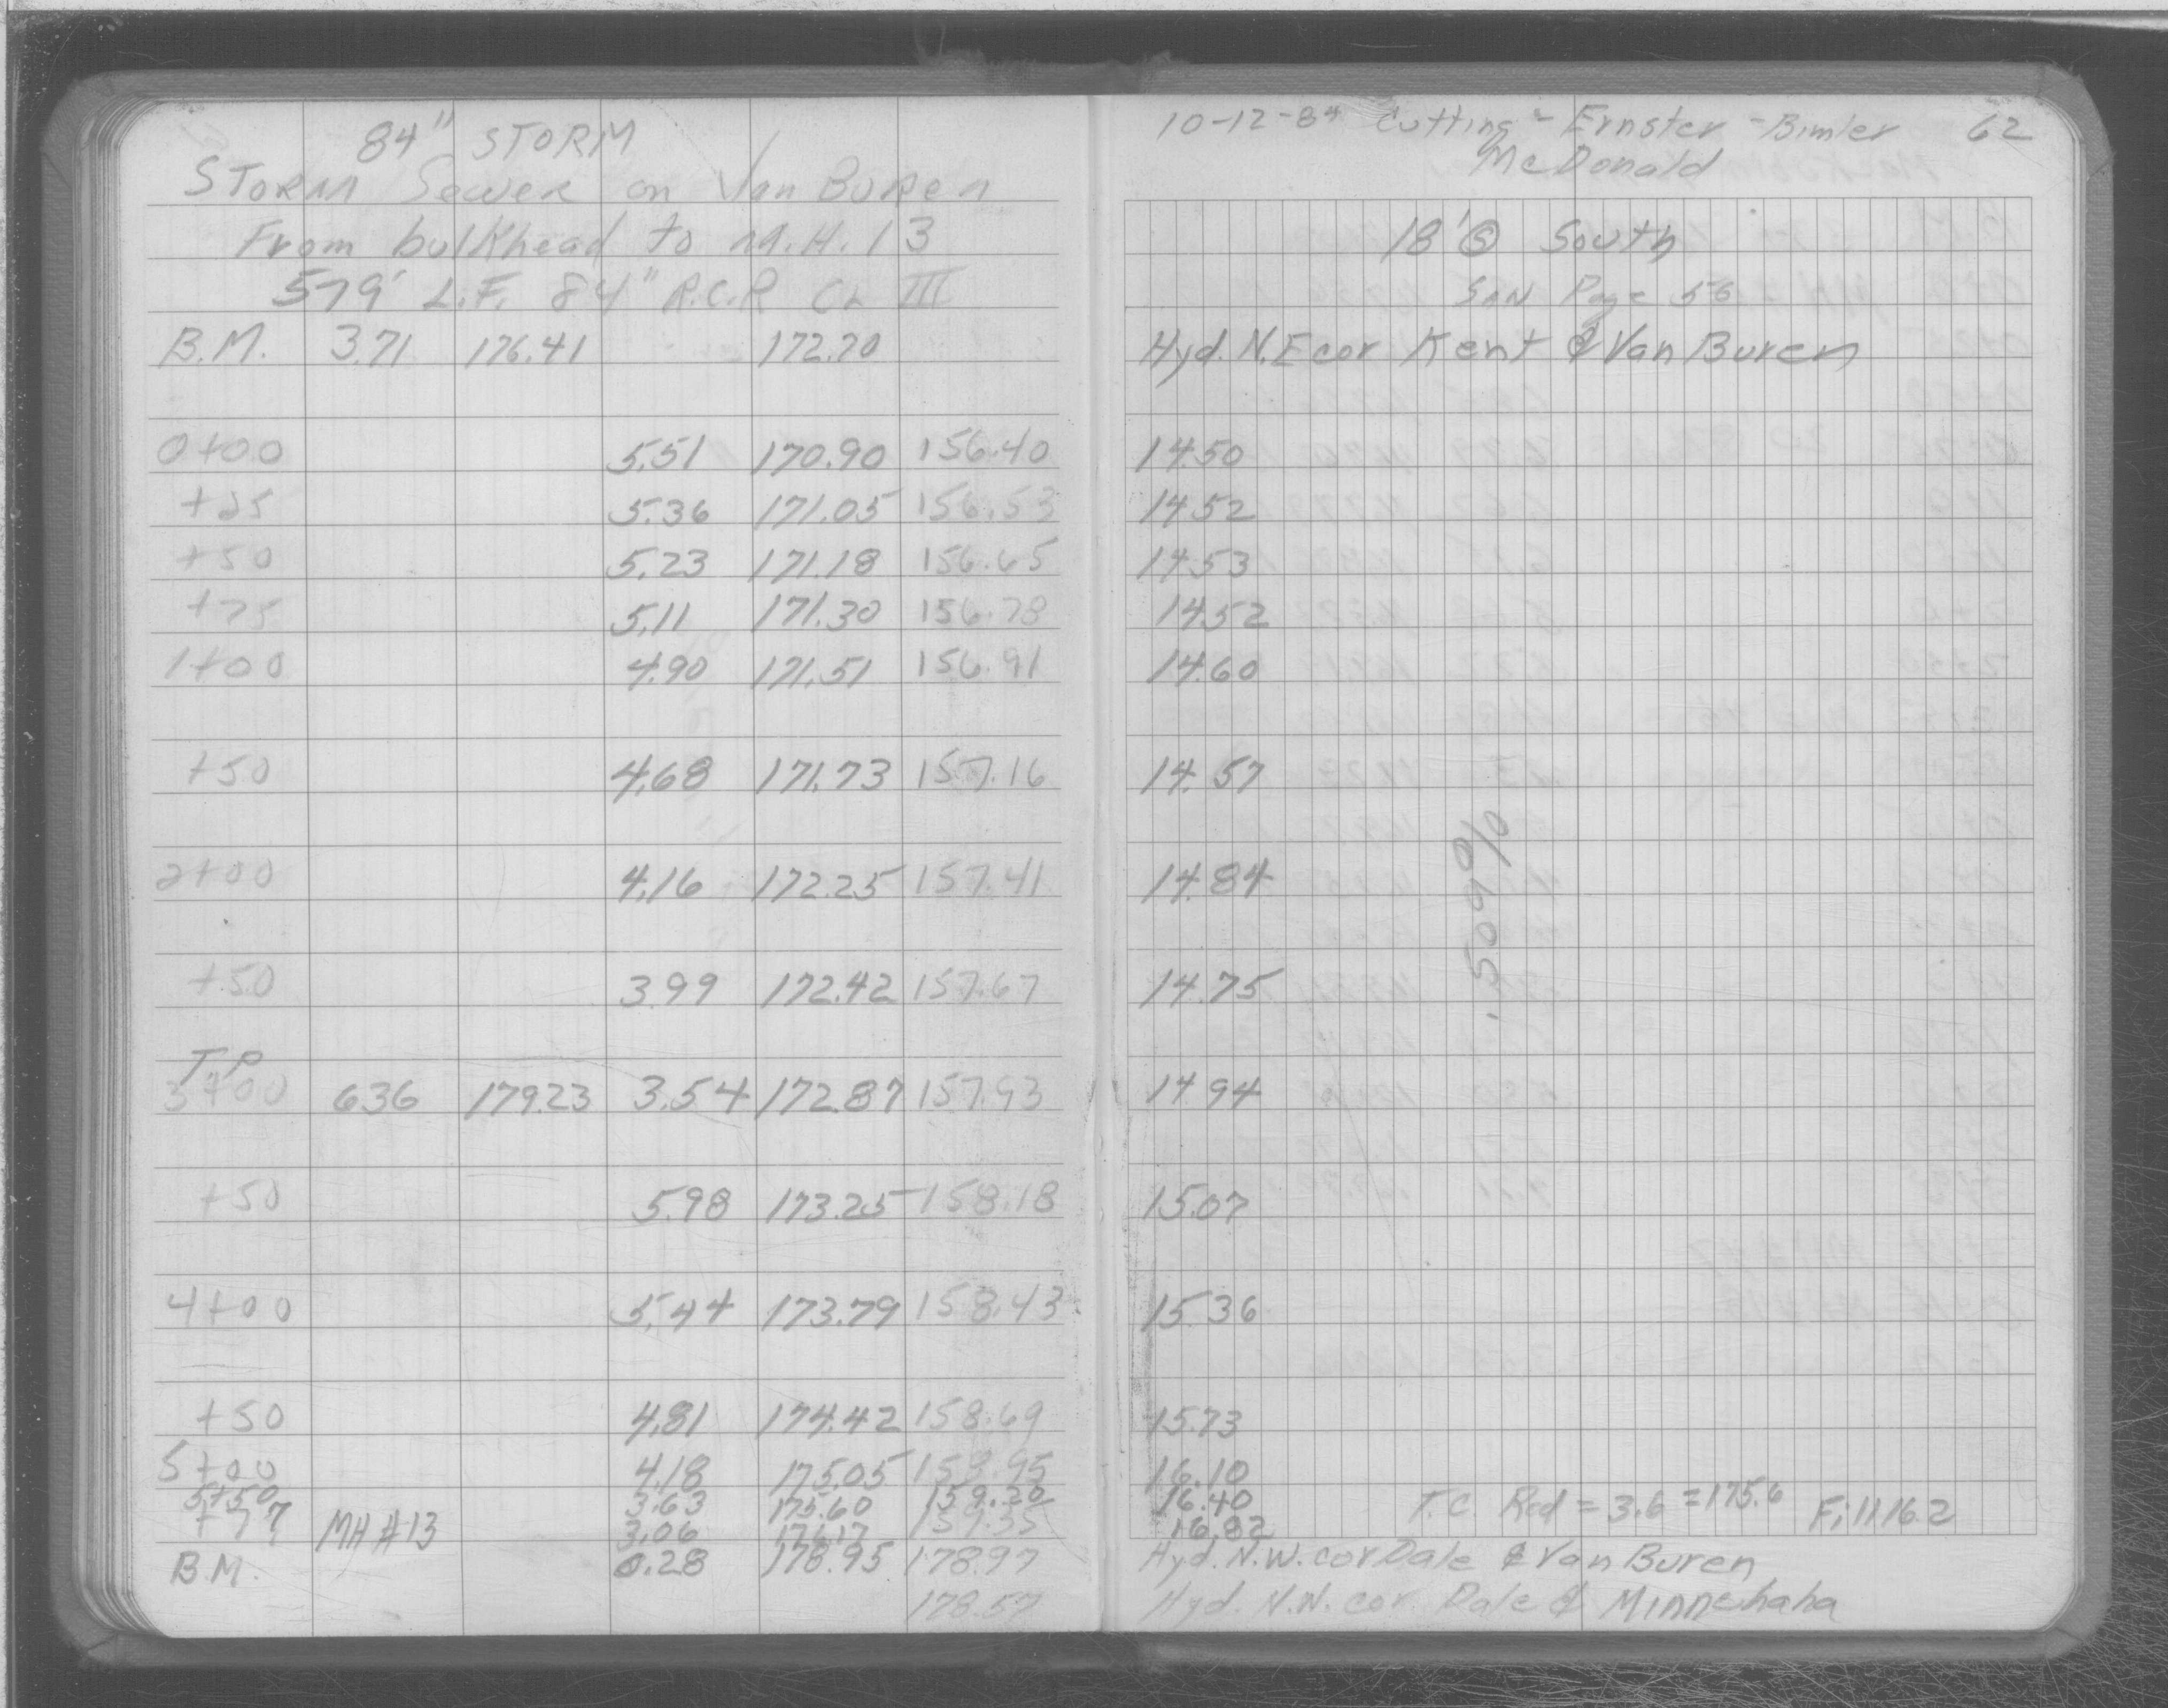 84" STORM
STORM Sewer on Van Buren
From bulkhead to M.H. 13
579' L.F. 84" R.C.P. CL III
B.M. 3.71 176.41 172.70
0+00 5.51 170.90 156.40
+25 5.36 171.05 156.53
+50 5.23 171.18 156.65
+75 5.11 171.30 156.78
1+00 4.90 171.51 156.91
+50 4.68 171.73 157.16
2+00 4.16 172.25 157.41
+50 3.99 172.42 157.67
T.P.
3+00 636 179.23 3.54 172.87 157.93
+50 5.98 173.25 158.18
4+00 5.44 173.79 158.43
+50 4.81 174.42 158.69
5+00 4.18 175.05 158.95
5+50 3.63 175.60 159.20
+77 MH #13 3.06 176.17 159.35
B.M. 0.28 178.95 178.97
178.57
10-12-84 Cutting - Ernster - Bimler 62
McDonald
18' Ⓢ South
SAN Page 56
Hyd. N.E cor Kent & Van Buren
14.50
14.52
14.53
14.52
14.60
14.57
14.84
14.75
.509%
14 94
15.07
15 36
15.73
16.10
16.40 T.C. Rod = 3.6 = 175.6 Fill 16.2
16.82
Hyd. N.W. cor. Dale & Van Buren
Hyd. N.W. cor. Dale & Minnehaha